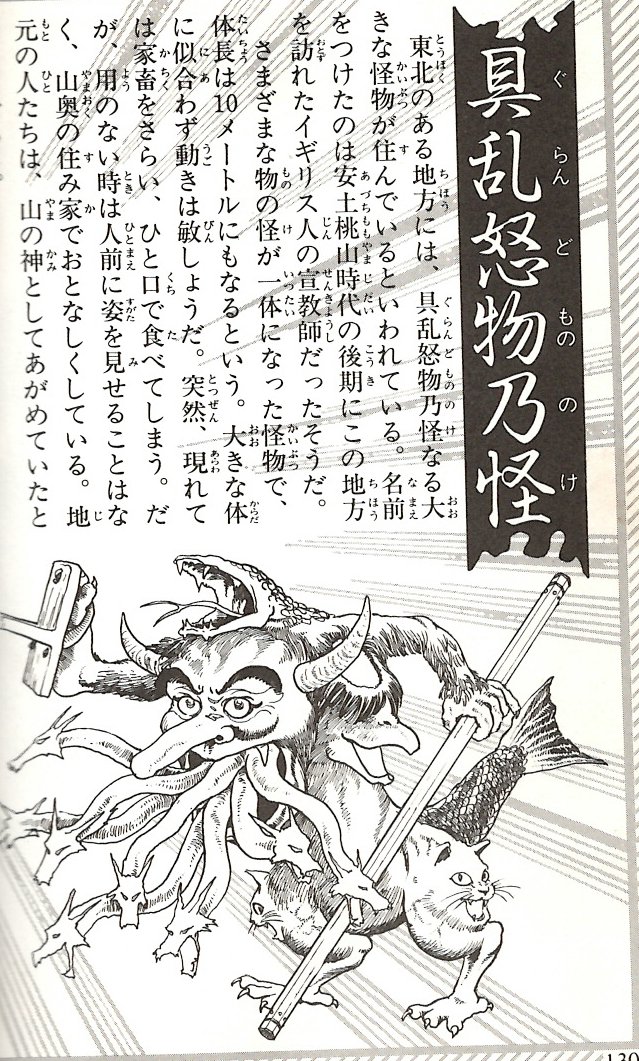 具乱怒物乃怪
ぐらんどもののけ
東北のある地方には、具乱怒物乃怪なる大
きな怪物が住んでいるといわれている。名前
をつけたのは安土桃山時代の後期にこの地方
を訪れたイギリス人の宣教師だったそうだ。
さまざまな物の怪が一体になった怪物で、
体長は10メートルにもなるという。大きな体
に似合わず動きは敏しょうだ。突然、現れて
は家畜をさらい、ひと口で食べてしまう。だ
が、用のない時は人前に姿を見せることはな
く、山奥の住み家でおとなしくしている。地
元の人たちは、山の神としてあがめていたと
130